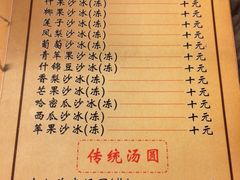 什果沙冰(冻) 十元
椰果沙冰(冻) 十元
莲子沙冰(冻) 十元
凤梨沙冰(冻) 十元
葡萄沙冰(冻) 十元
青苹果沙冰(冻) 十元
什锦豆沙冰(冻) 十元
香梨沙冰(冻) 十元
芒果沙冰(冻) 十元
哈密瓜沙冰(冻) 十元
西瓜沙冰(冻) 十元
苹果沙冰(冻) 十元
传统汤圆